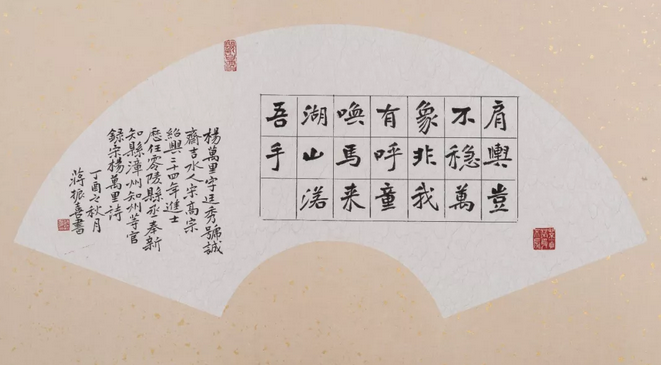 肩輿豈
不穩萬
象非我
有呼童
喚馬来
湖山渃
吾手
楊萬里字廷秀號誠
齋吉水人宋高宗
紹興二十四年進士
歷任零陵縣丞奉新
知縣漳州知州等官
錄宋楊萬里詩
丁酉之秋月
蔣振善書